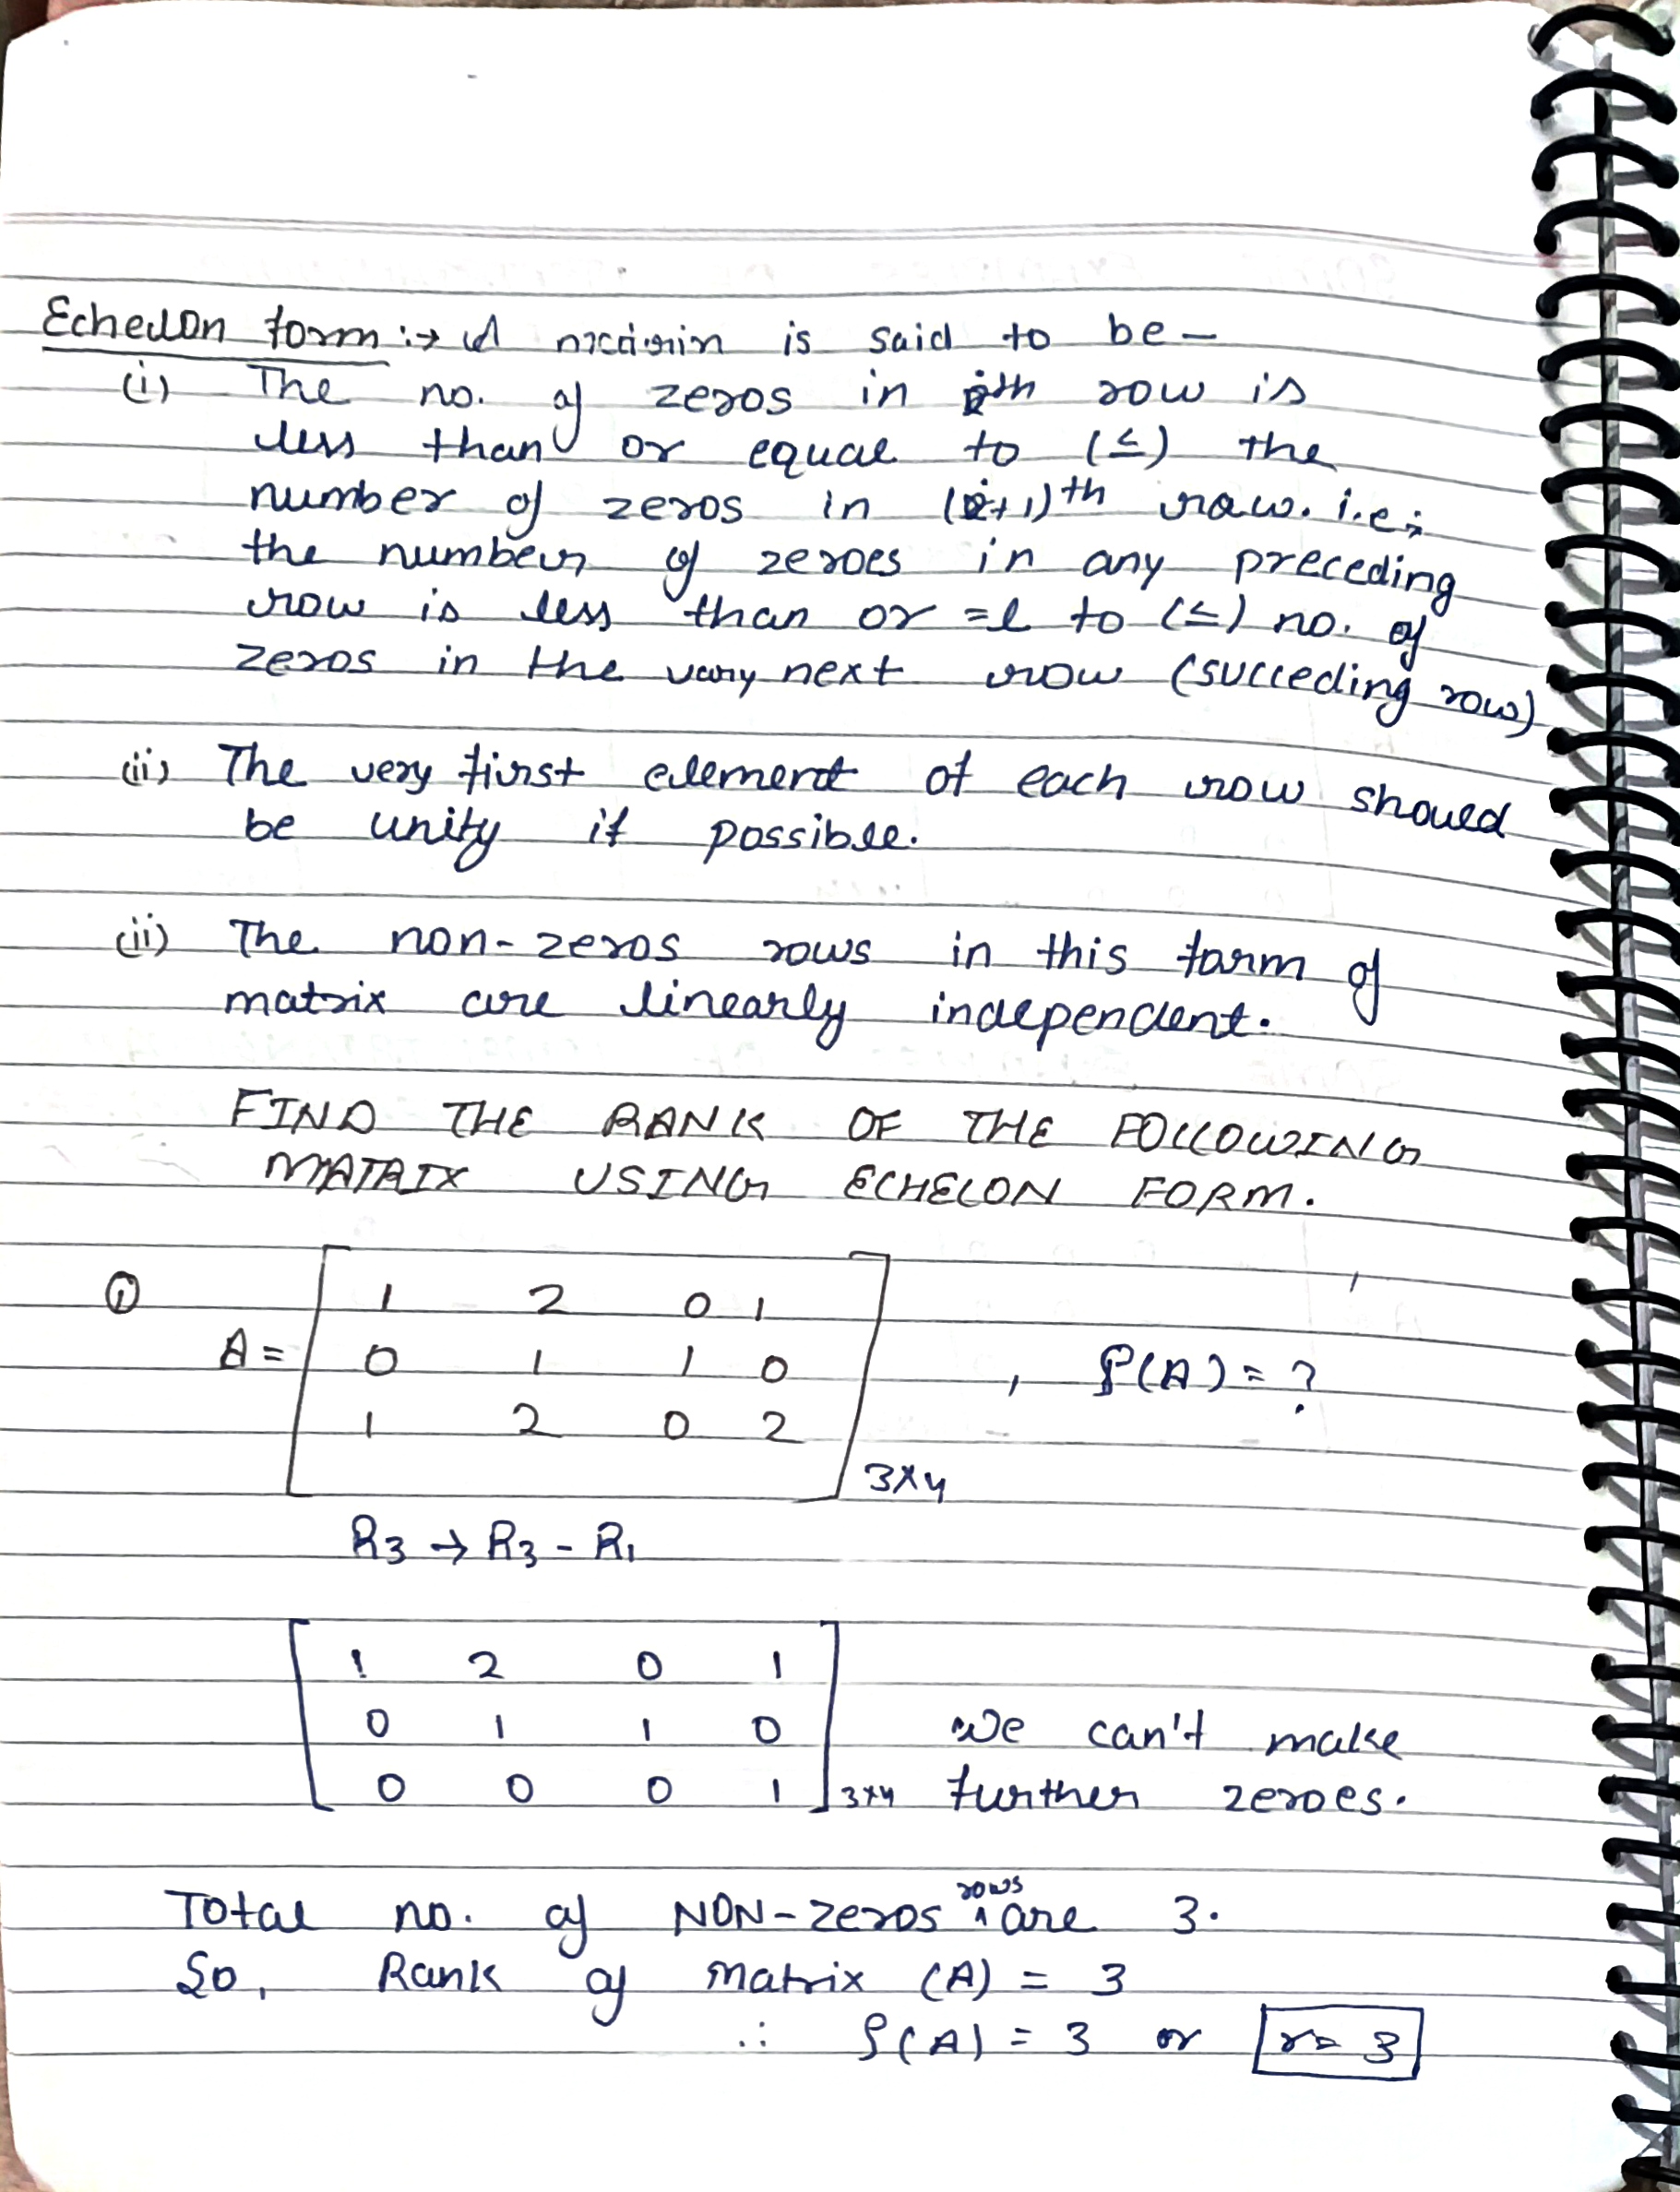 Echelon form :→ A matrix is said to be –
(i) The no. of zeros in ith row is
less than or equal to (≤) the
number of zeros in (i+1)th row. i.e;
the number of zeroes in any preceding
row is less than or =l to (≤) no. of
zeros in the very next row (succeding row)
(ii) The very first element of each row should
be unity if possible.
(ii) The non-zeros rows in this form of
matrix are linearly independent.
FIND THE RANK OF THE FOLLOWING
MATRIX USING ECHELON FORM.
① 1 2 0 1
A = 0 1 1 0 , ρ(A) = ?
1 2 0 2
3×4
R3 → R3 - R1
1 2 0 1
0 1 1 0 we can't make
0 0 0 1 3×4 further zeroes.
Total no. of NON-zeros rows are 3.
So, Rank of matrix (A) = 3
∴ ρ(A) = 3 or r = 3